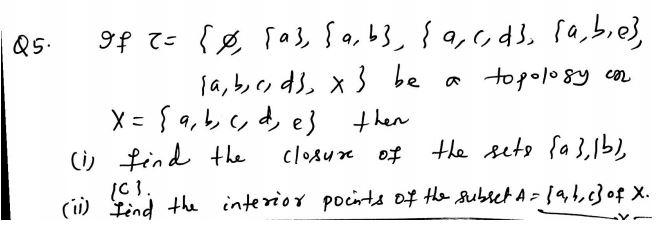 Q5. If τ = {ø, {a}, {a,b}, {a,c,d}, {a,b,e},
{a,b,c,d}, X} be a topology on
X = {a,b,c,d,e} then
(i) find the closure of the sets {a},{b},
{c}.
(ii) find the interior points of the subset A = {a,b,c} of X.